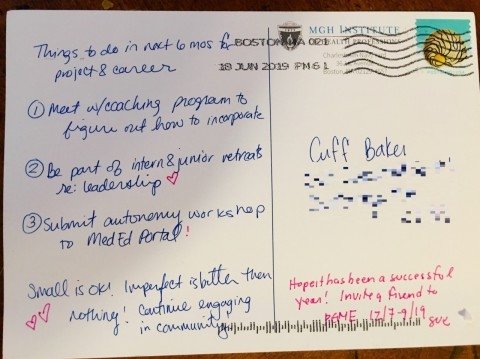 Things to do in next 6 mos for
project & career
① Meet w/coaching program to
figure out how to incorporate
② Be part of intern & junior retreats
re: leadership
③ Submit autonomy workshop
to MedEd Portal!
Small is OK! Imperfect is better then
nothing! Continue engaging
in community
MGH INSTITUTE
HEALTH PROFESSIONS
Boston
BOSTON MA 021
18 JUN 2019 PM 6 L
Cuff Baker
Hope it has been a successful
year! Invite a friend to
17/7-9/19